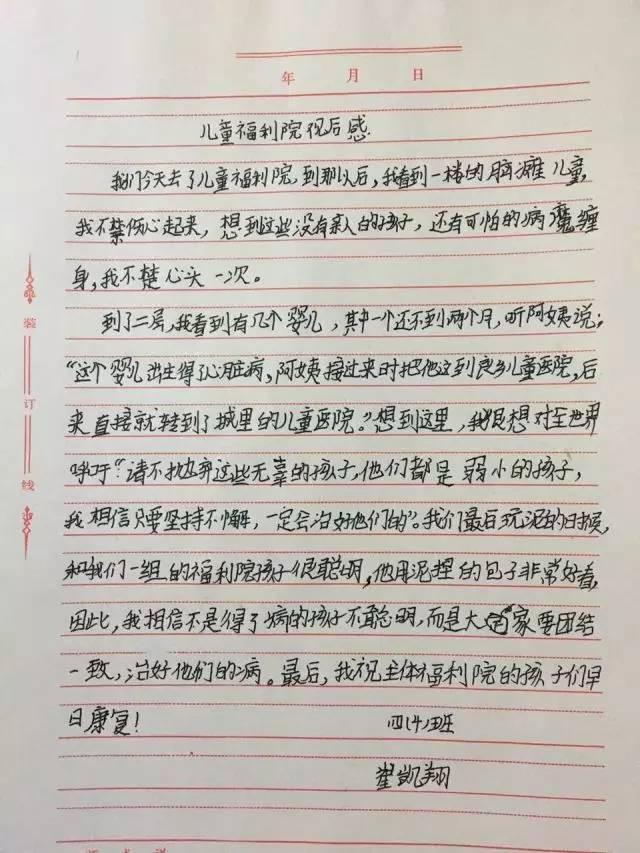 年 月 日
儿童福利院观后感
我们今天去了儿童福利院,到那以后,我看到一楼的脑瘫儿童,
我不禁伤心起来,想到这些没有亲人的孩子,还有可怕的病魔缠
身,我不楚心头一次。
到了二层,我看到有几个婴儿,其中一个还不到两个月,听阿姨说:
“这个婴儿出生得了心脏病,阿姨接过来时把他送到良乡儿童医院,后
来直接就转到了城里的儿童医院。”想到这里,我很想对全世界
呼吁“请不抛弃这些无辜的孩子,他们都是弱小的孩子,
我相信只要坚持不懈,一定会治好他们的”。我们最后玩泥的时候,
和我们一组的福利院孩子很聪明,他用泥捏的包子非常好看,
因此,我相信不是得了病的孩子不聪明,而是大家要团结
一致,治好他们的病。最后,我祝全体福利院的孩子们早
日康复!
四(4)班
翟凯翔
装
订
线